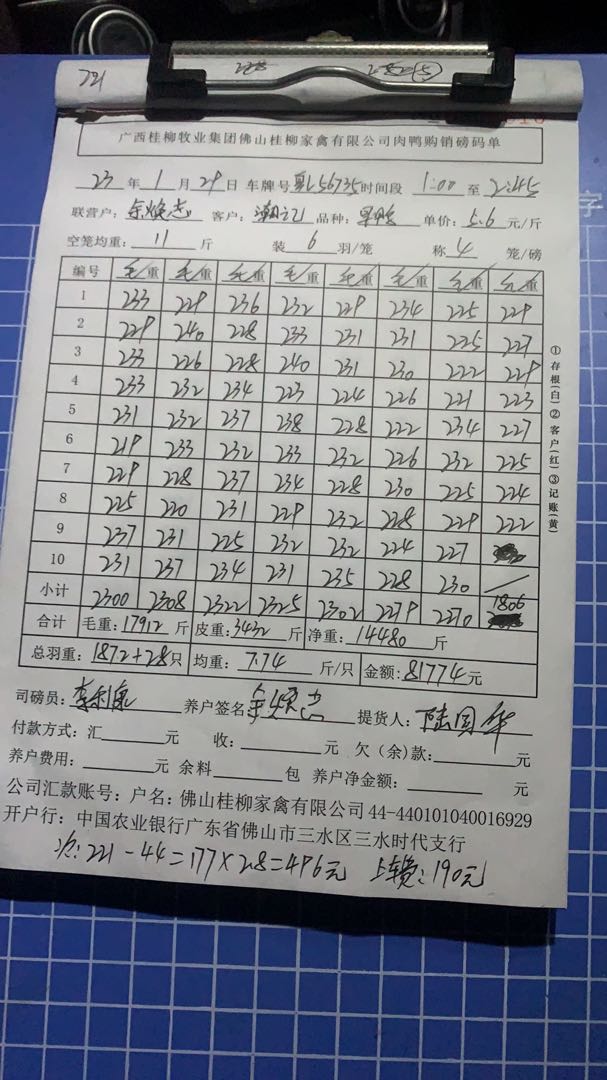 221
广西桂柳牧业集团佛山桂柳家禽有限公司肉鸭购销磅码单
23 年 1 月 29 日 车牌号 56735 时间段 1:00 至 2:45
联营户: 余焕志 客户: 潮记 品种: 单价: 5.6 元/斤
空笼均重: 11 斤 装 6 羽/笼 称 4 笼/磅
编号 毛重 毛重 毛重 毛重 毛重 毛重 毛重 毛重
1 233 229 236 232 229 234 225 229
2 229 240 228 233 231 231 225 227
3 233 226 228 240 231 230 222 229
4 233 232 234 223 224 226 221 223
5 231 232 237 238 228 222 234 227
6 219 233 232 233 232 226 232 225
7 229 228 237 234 228 230 225 224
8 225 220 231 229 232 228 229 222
9 237 231 225 232 232 224 227
10 231 237 234 231 235 228 230 /
小计 2300 2308 2322 2325 2302 2279 2270 1806
合计 毛重: 17912 斤 皮重: 3432 斤 净重: 14480 斤
总羽重: 1872+28 只 均重: 7.74 斤/只 金额: 81774 元
司磅员: 李利康 养户签名 余焕志 提货人: 陆国华
付款方式: 汇 元 收: 元 欠(余)款: 元
养户费用: 元 余料 包 养户净金额: 元
公司汇款账号: 户名: 佛山桂柳家禽有限公司 44-440101040016929
开户行: 中国农业银行广东省佛山市三水区三水时代支行
次: 221-44=177×2.8=496元 上车费: 190元
①存根(白)②客户(红)③记账(黄)